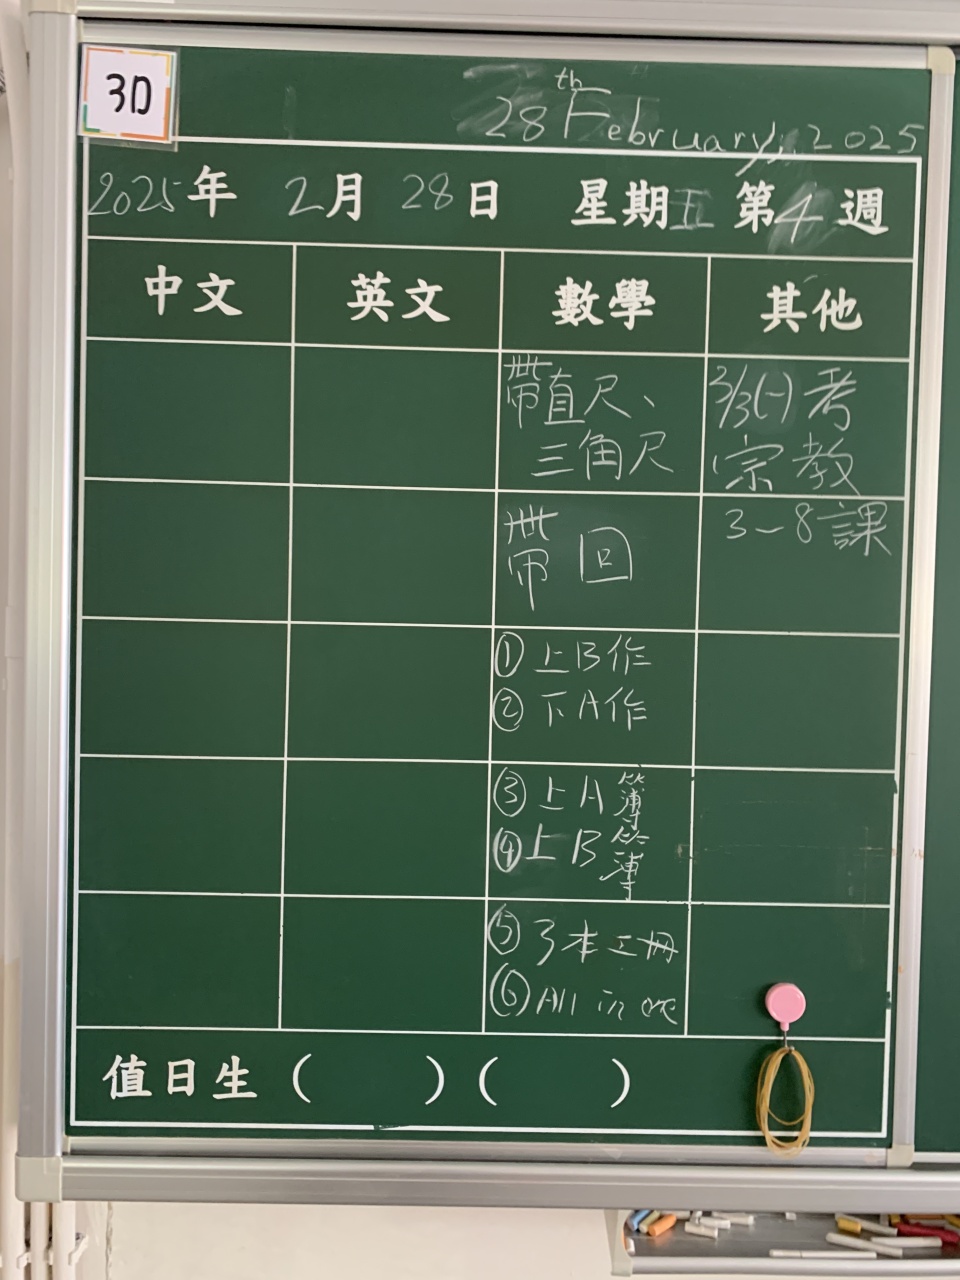 3D
28th February, 2025
2025年 2月 28日 星期五 第4週
中文 英文 數學 其他
帶直尺、
三角尺
3/3(一)考
宗教
3－8課
帶回
①上B作
②下A作
③上A簿
④上B簿
⑤3本工冊
⑥All in one
值日生 ( ) ( )